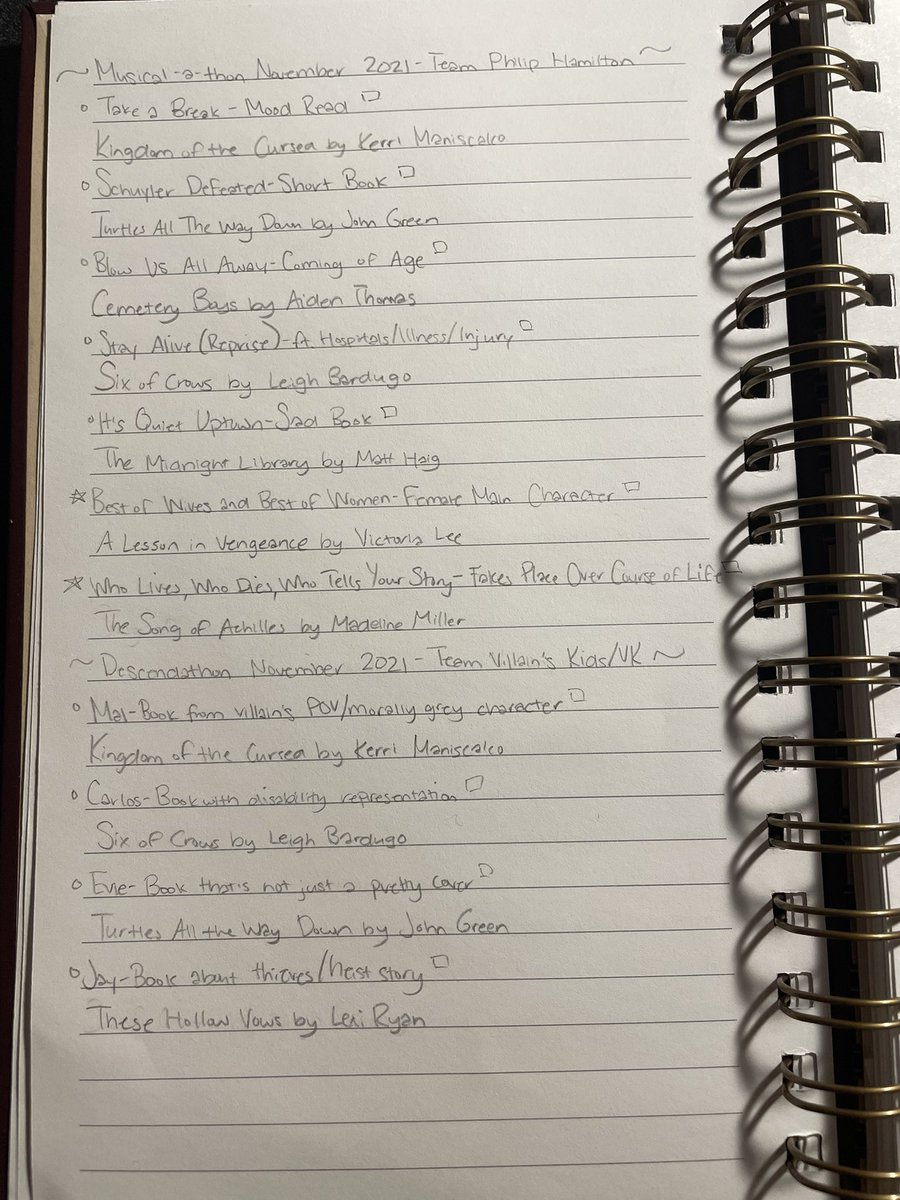 ~ Musical-a-thon November 2021-Team Philip Hamilton ~
Take a Break - Mood Read
Kingdom of the Cursea by Kerri Maniscalco
Schuyler Defeated-Short Book
Turtles All The Way Down by John Green
Blow Us All Away-Coming of Age
Cemetery Boys by Aiden Thomas
Stay Alive (Reprise)-ft. Hospitals/Illness/Injury
Six of Crows by Leigh Bardugo
It's Quiet Uptown-Sad Book
The Midnight Library by Matt Haig
☆ Best of Wives and Best of Women-Female Main Character
A Lesson in Vengeance by Victoria Lee
☆ Who Lives, Who Dies, Who Tells Your Story-Takes Place Over Course of Life
The Song of Achilles by Madeline Miller
~ Descendathon November 2021-Team Villain's Kids/VK ~
Mal-Book from villain's POV/morally grey character
Kingdom of the Cursea by Kerri Maniscalco
Carlos-Book with disability representation
Six of Crows by Leigh Bardugo
Evie-Book that's not just a pretty cover
Turtles All the Way Down by John Green
Jay-Book about thieves/heist story
These Hollow Vows by Lexi Ryan